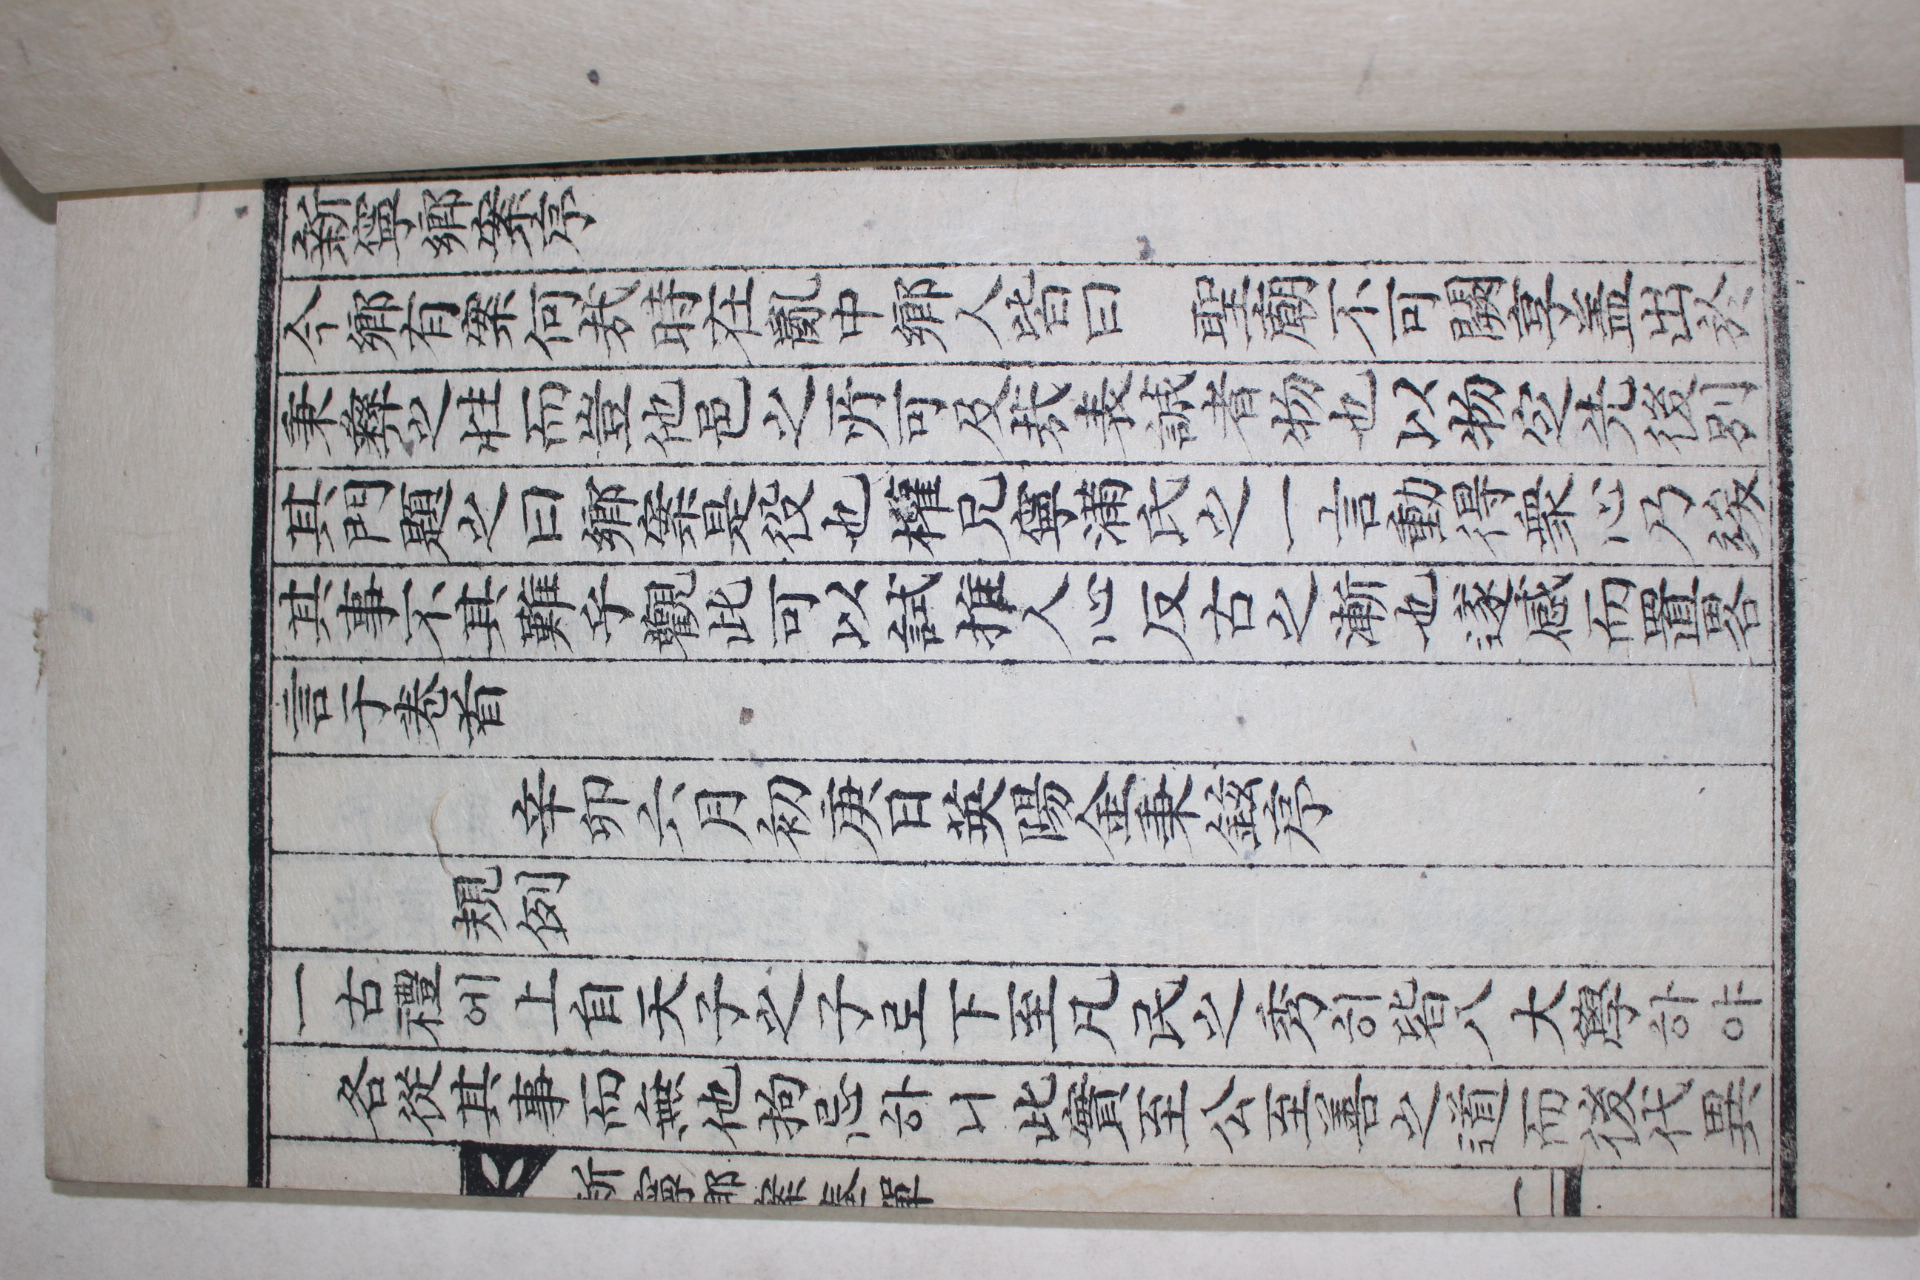 新寧鄕案序
今鄕有案何哉時在亂中鄕人皆曰 聖朝不可闕享盖出於
秉彝之性而豈他邑之所可及哉表誠者物也以物之先後別
其門題之曰鄕案是役也權兄寧溝氏之一言動得衆心乃竣
其事不其難乎觀此可以試推人心反古之漸也遂感而置畧
言于卷首
辛卯六月初庚日英陽金秉鉉序
規例
一古禮에上自天子之子로下至凡民之秀히皆入大學하야
各從其事而無他拘忌하니此實至公至善之道而後代異
新寧鄕案
一